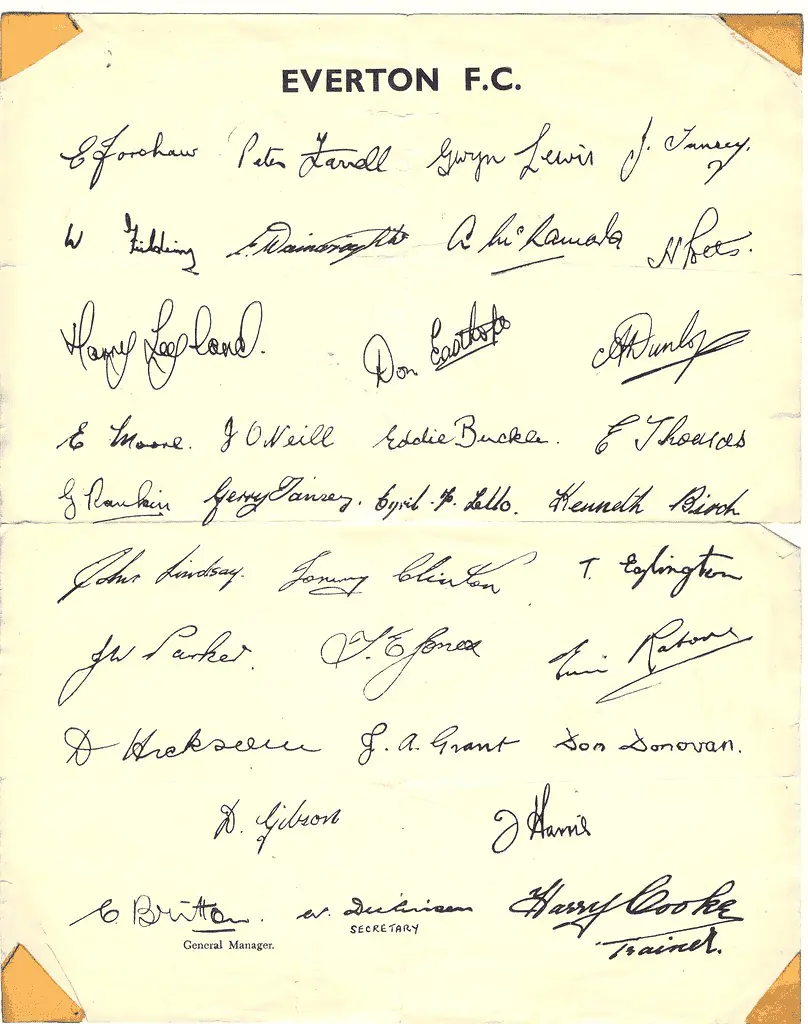 EVERTON F.C.
E Forshaw Peter Farrell Gwyn Lewis J. Tansey.
W Fielding E. Wainwright A McNamara H Potts.
Harry Leyland. Don Easthope A Dunlop
E Moore. J O'Neill Eddie Buckle. E Thomas
G Rankin Gerry Tansey. Cyril F. Lello. Kenneth Birch
John Lindsay. Tommy Clinton T. Eglington
JW Parker. T.E Jones
D Hickson J. A. Grant Don Donovan.
D. Gibson J Harris
C. Britton. W. Dickinson Harry Cooke
SECRETARY
General Manager. Trainer.